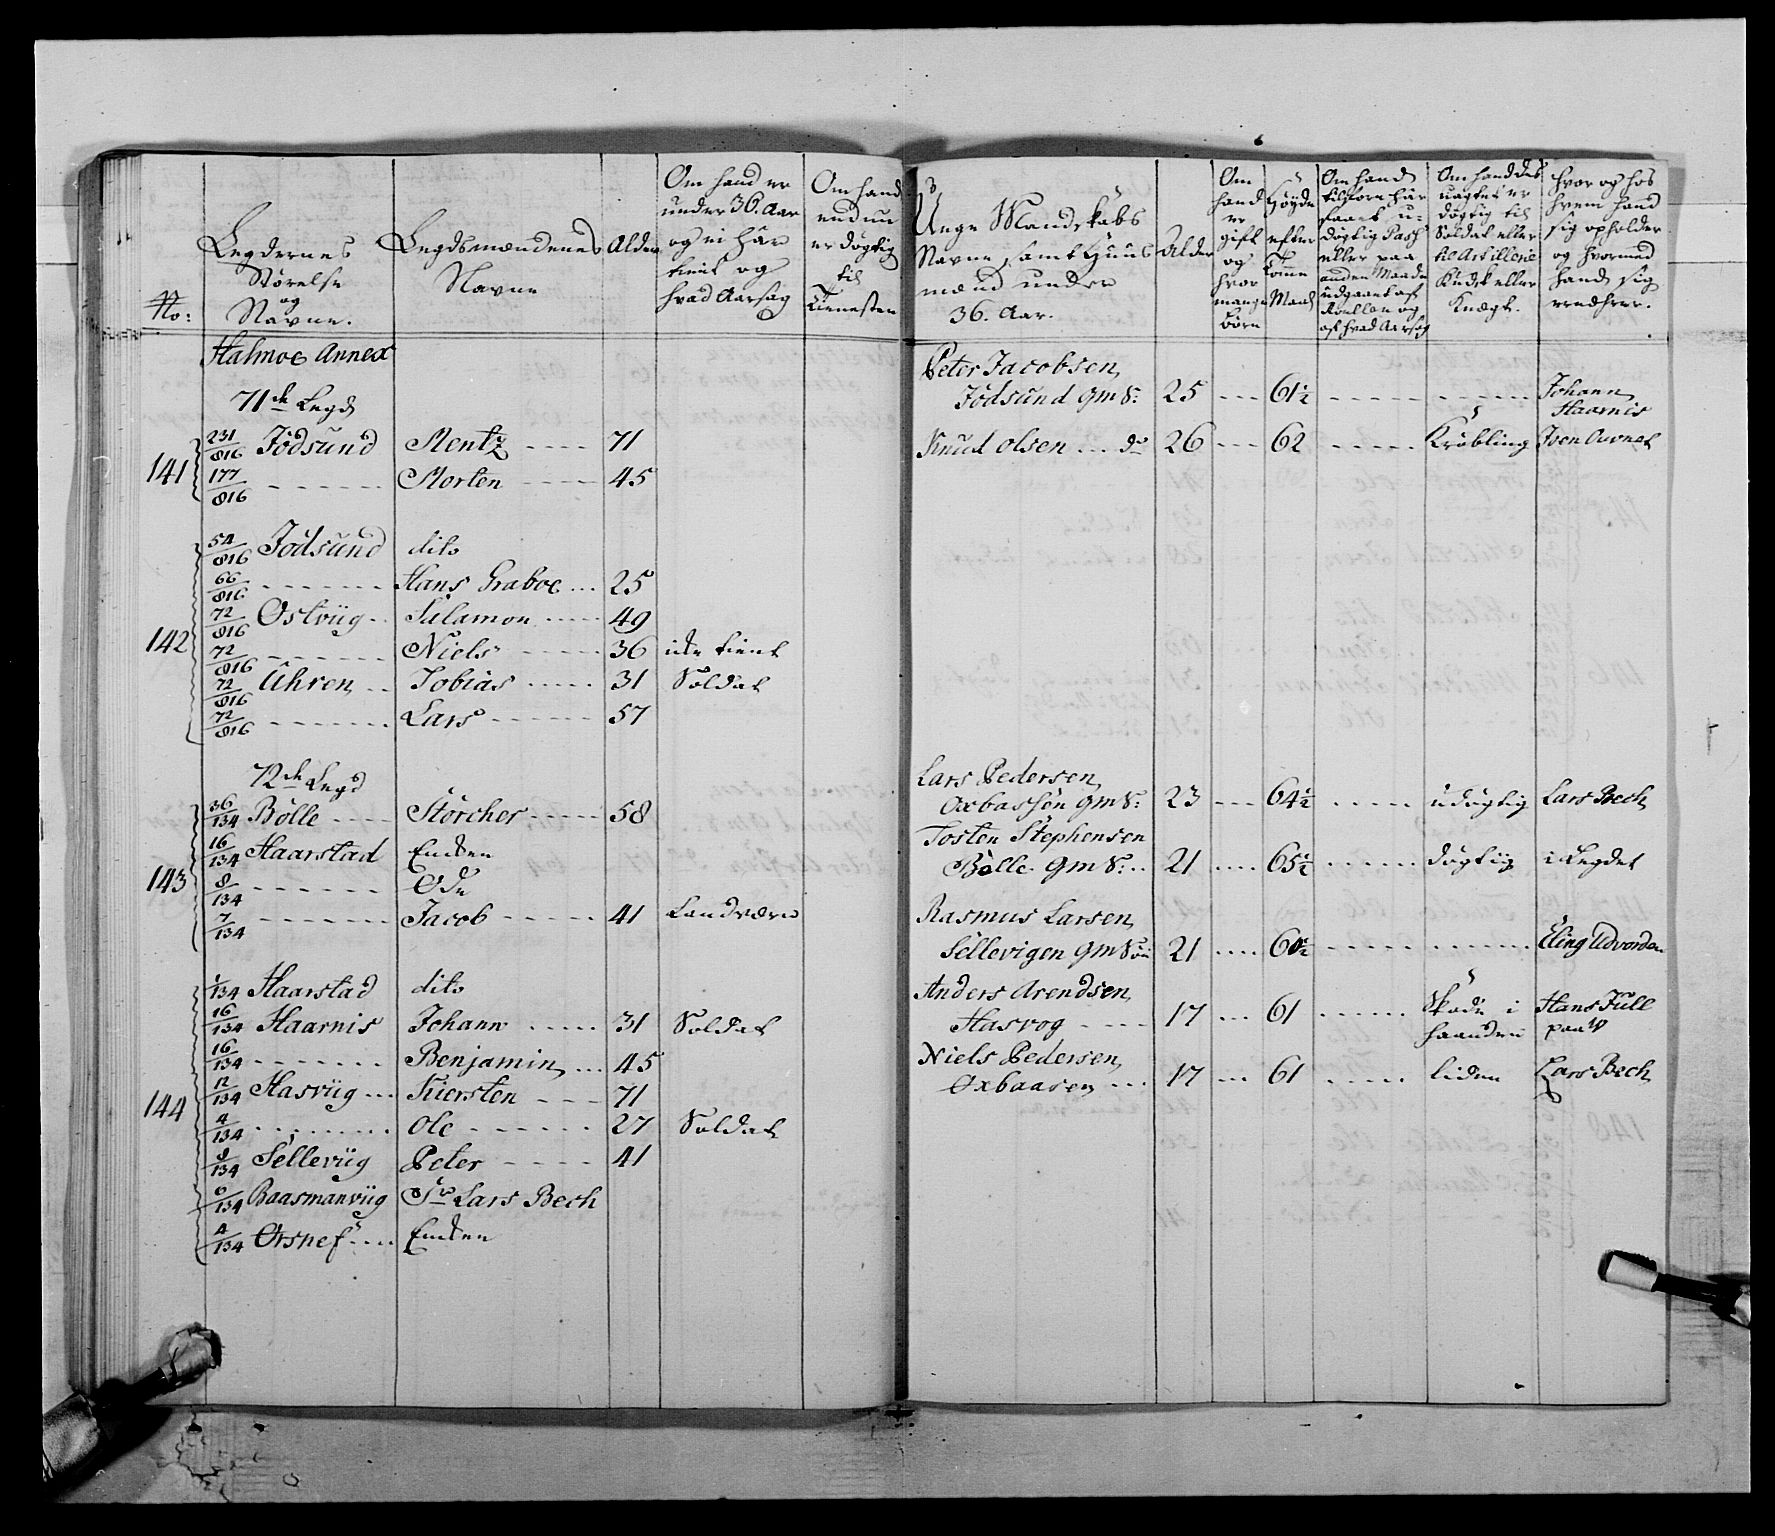 No:
Legdernes
Størelse
og
Navne.
Legdsmændenes
Navne
Alder
Om hand er
under 36. Aar
og ei har
tient og
hvad Aarsag
Om hand
end nu
er døgtig
til
Tienesten
Halmoe Annex
71de Legd
141
231/816 Jödsund Mentz ---- 71
177/816 ------ Morten ---- 45
142
54/816 Jodsund dito
66/816 ------ Hans Graboe ... 25
72/816 Ostviig .. Salamon ---- 49
72/816 ------ Niels ---- 36 icke tient
72/816 Uhren .. Tobias ---- 31 Soldat
72/816 ------ Lars ---- 57
72de Legd
143
36/134 Bölle ---- Störcher ---- 58
16/134 Haarstad Enken
8/134 ------ Öde
7/134 ------ Jacob ---- 41 Landværn
144
1/134 Haarstad dito
16/134 Haarnis Johann ---- 31 Soldat
16/134 ------ Benjamin ... 45
12/134 Hasviig ... Kiersten ---- 71
4/134 ------ Ole ---- 27 Soldat
8/134 Selleviig Peter ---- 41
6/134 Baasmanviig Sr Lars Bech
4/134 Orsnes ... Enken
Unge Mandskabs
Navne samt Huus
mænd under
36. Aar.
Alder
Om
hand
er
gift
og
hvor
mange
børn
Høyde
efter
Tomme
Maal
Om hand
tilforn har
faaet u-
døgtig Pas
eller paa
anden Maade
udgaaet af
Rullen og
af hvad Aarsag
Om hand des
uagtet er
døgtig til
Soldat eller
til Artillerie
Kudsk eller
Knægt.
hvor og hos
hvem hand
sig opholder
og hvormed
hand sig
ernährer.
Peter Jacobsen
Jödsund GmS: 25 --- 61½ ----- ----- Johann
Haarnis
Knud Olsen ... do 26 --- 62 ----- Kröbling Iven Aavnet
Lars Pedersen
Oxbassen GmS: 23 --- 64½ ----- udøgtig Lars Bech
Tosten Stephensen
Bölle GmS: .. 21 ---- 65½ ----- døgtiig i Legdet
Rasmus Larsen
Sellevigen GmSön 21 ---- 60½ ----- ----- Eling Udvorden
Anders Arendsen
Hasvog ---- 17 --- 61 ----- Skade i Hans Jull
haanden
Niels Pedersen
Oxbaasen ... 17 --- 61 ----- liden Lars Bech